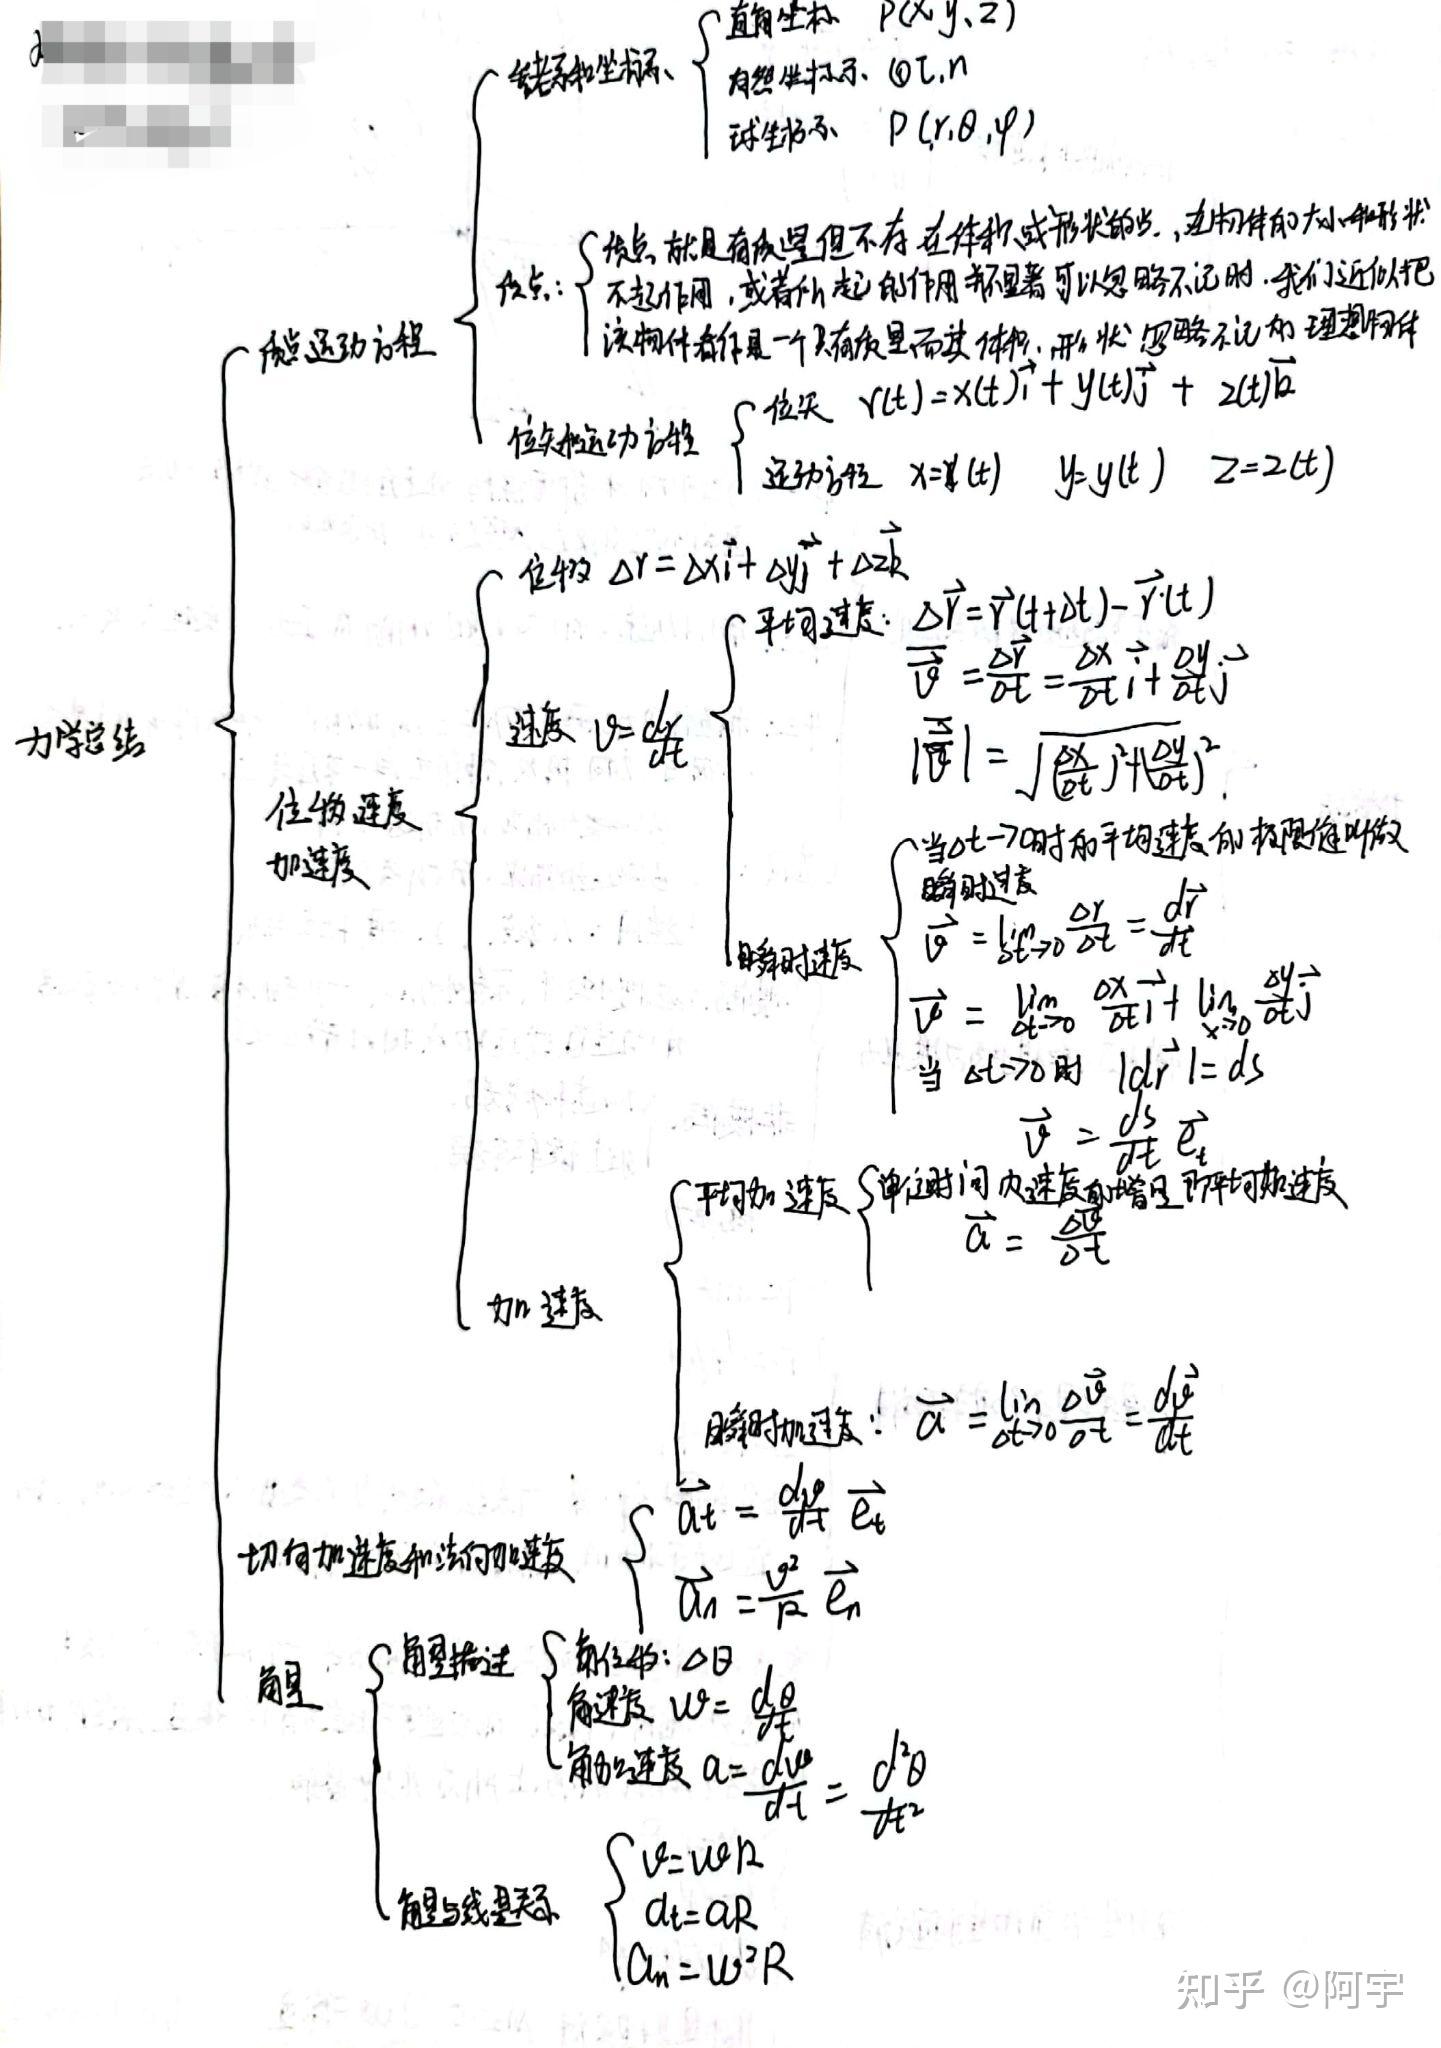 参考系和坐标系
直角坐标 P(x,y,z)
自然坐标系 τ,n
球坐标系 P(r,θ,φ)
质点运动方程
质点:
质点就是有质量但不存在体积或形状的点,在物体的大小和形状
不起作用,或者所起的作用并不显著可以忽略不记时,我们近似把
该物体看作是一个只有质量而其体积、形状忽略不记的理想物体
位矢和运动方程
位矢 r(t)=x(t)i⃗+y(t)j⃗+z(t)k⃗
运动方程 x=x(t) y=y(t) z=z(t)
力学总结
位移速度
加速度
位移 Δr=Δxi⃗+Δyj⃗+Δzk⃗
速度 v=dr/dt
平均速度: Δr⃗=r⃗(t+Δt)-r⃗(t)
v⃗=Δr⃗/Δt=Δx/Δt i⃗+Δy/Δt j⃗
|v⃗|=√(Δx/Δt)²+(Δy/Δt)²
瞬时速度
当Δt→0时的平均速度的极限值叫做
瞬时速度
v⃗=lim Δt→0 Δr/Δt=dr⃗/dt
v⃗=lim Δt→0 Δx/Δt i⃗+lim x→0 Δy/Δt j⃗
当Δt→0时 |dr⃗|=ds
v⃗=ds/dt e⃗t
加速度
平均加速度
单位时间内速度的增量即平均加速度
a⃗=Δv⃗/Δt
瞬时加速度: a⃗=lim Δt→0 Δv⃗/Δt=dv⃗/dt
切向加速度和法向加速度
a⃗t=dv/dt e⃗t
a⃗n=v²/R e⃗n
角量
角量描述
角位移:Δθ
角速度 w=dθ/dt
角加速度 a=dw/dt=d²θ/dt²
角量与线量关系
v=wR
at=aR
an=w²R
知乎 @阿宇